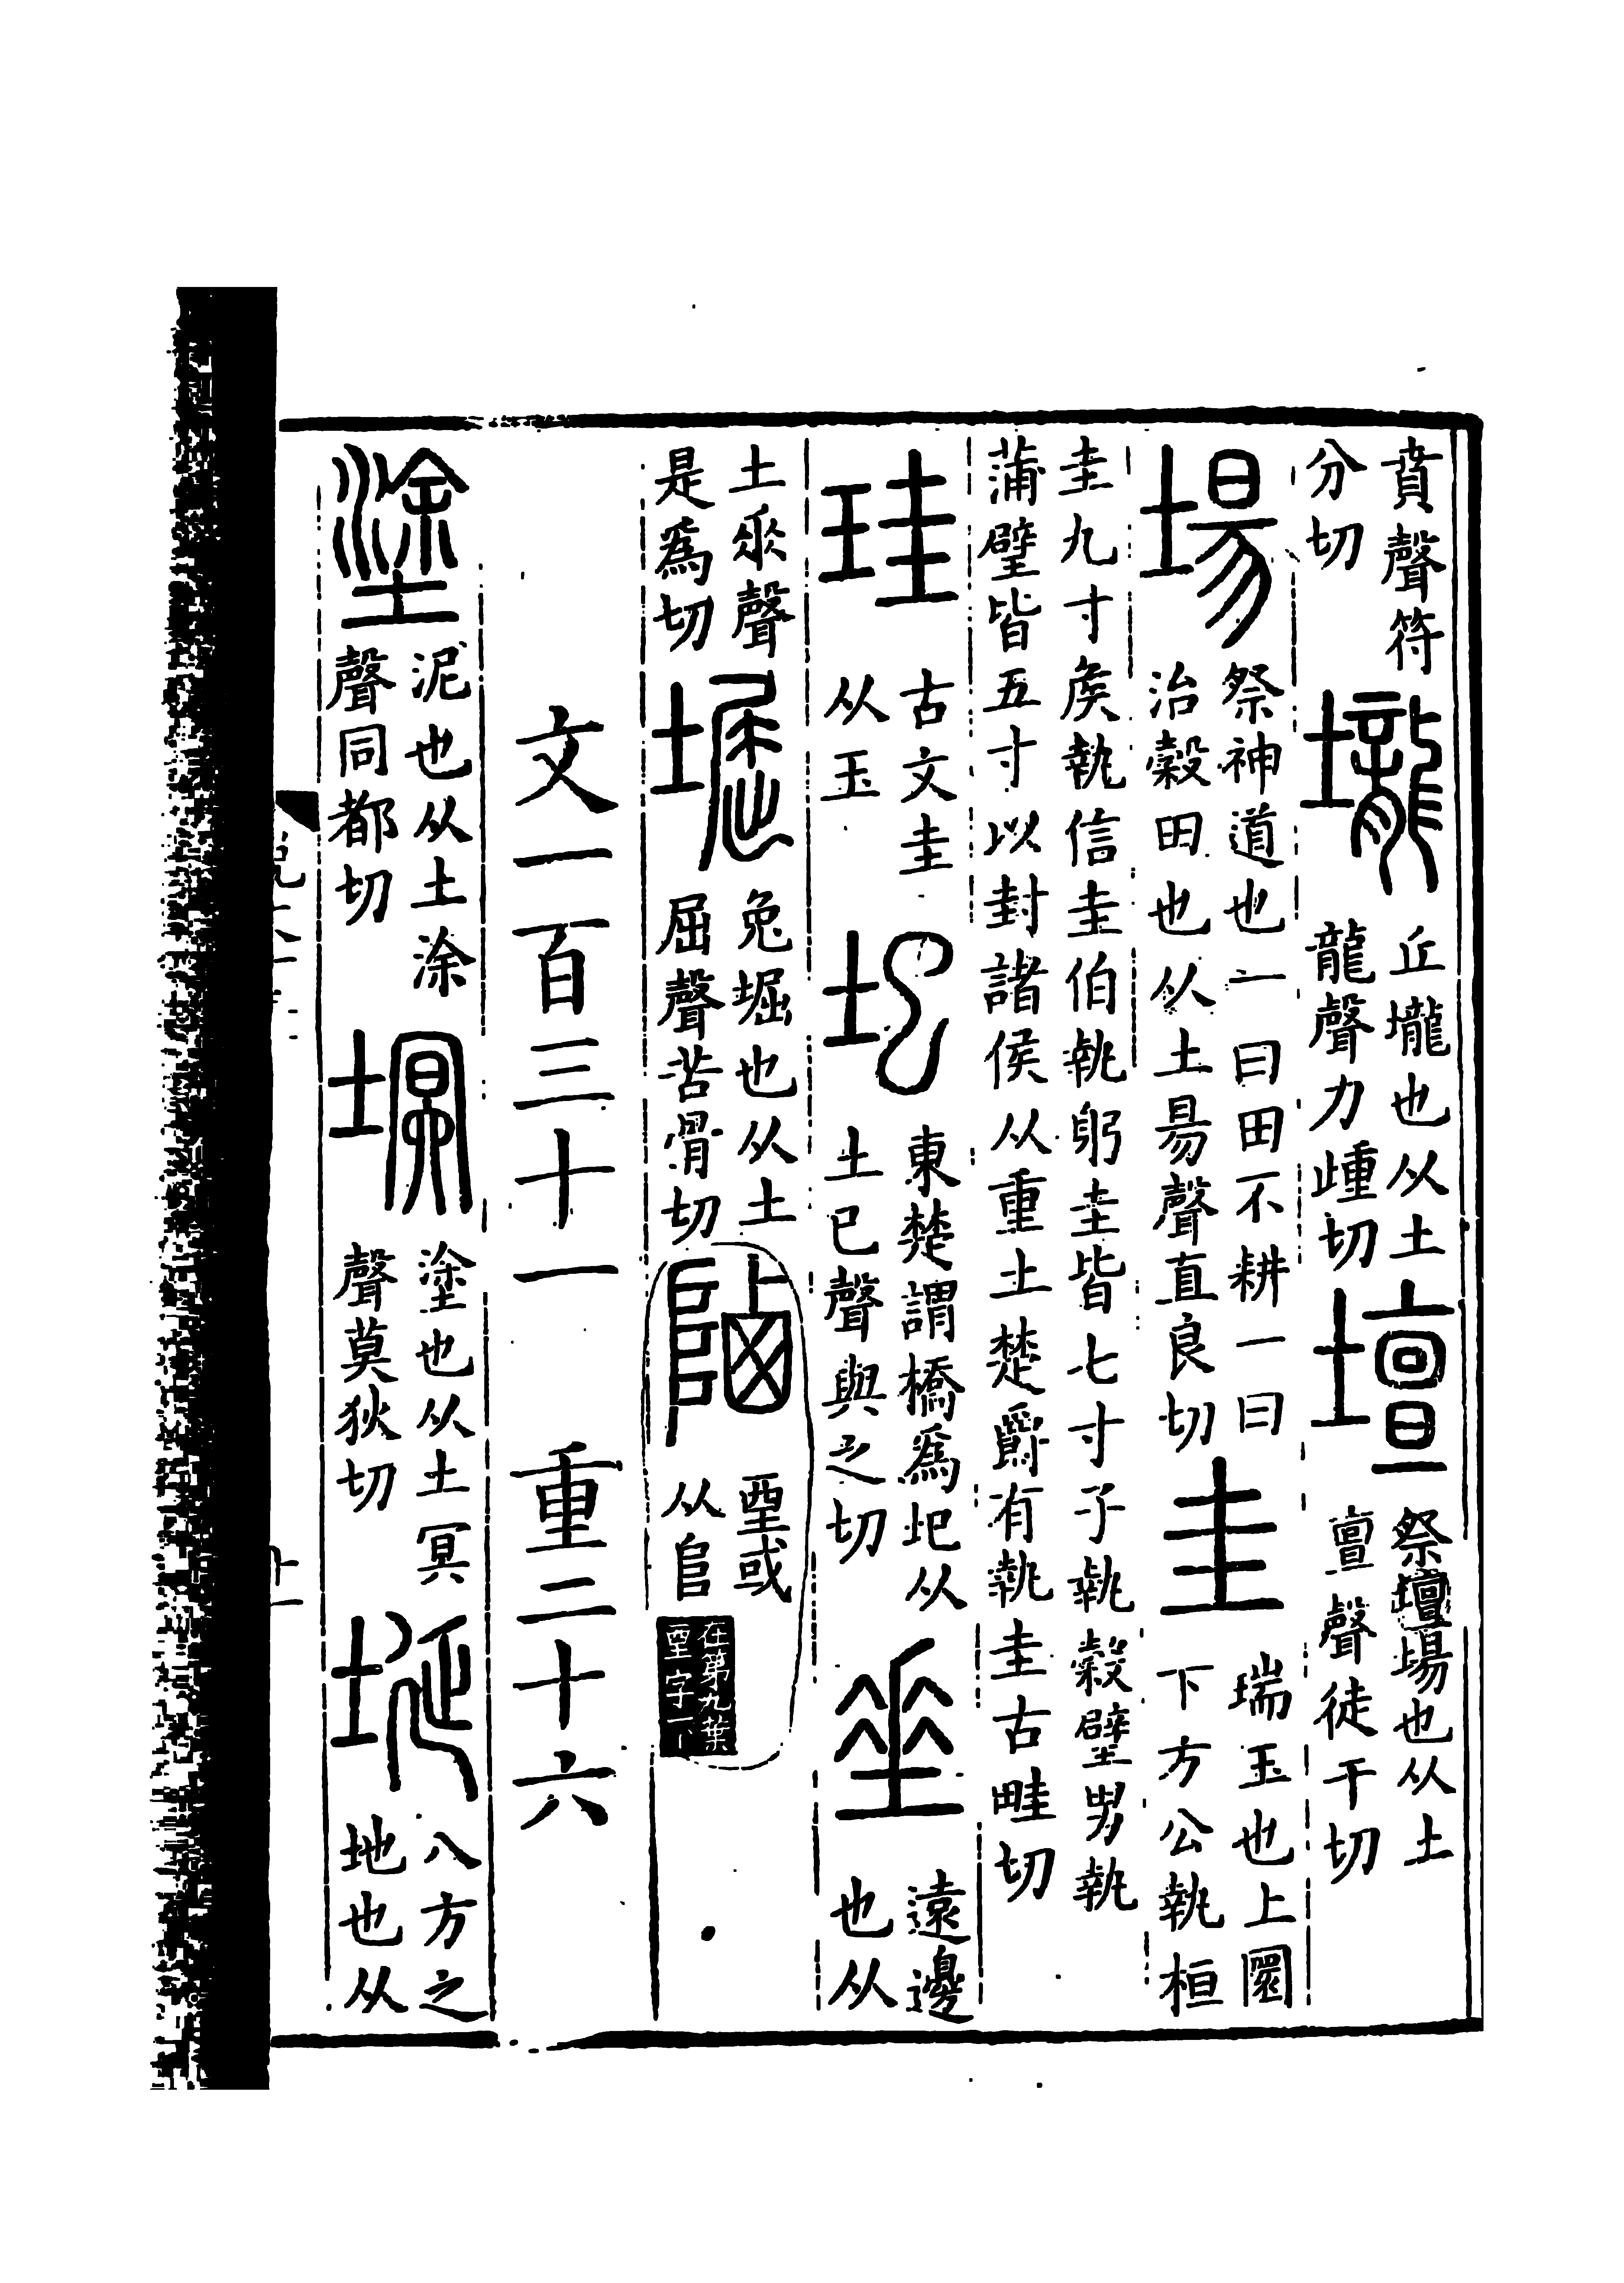 賁聲符
分切
壠
丘壠也从土
龍聲力歱切
壇
祭壇場也从土
亶聲徒干切
場
祭神道也一曰田不耕一曰
治糓田也从土昜聲直良切
圭
瑞玉也上圜
下方公執桓
圭九寸矦執信圭伯執躬圭皆七寸子執糓璧男執
蒲璧皆五寸以封諸侯从重土楚爵有執圭古畦切
珪
古文圭
从玉
圯
東楚謂橋爲圯从
土巳聲與之切
垂
遠邊
也从
土𠂹聲
是爲切
堀
兔堀也从土
屈聲苦骨切
垔或
从𨸏
在第九葉
垔字下
文一百三十一　重二十六
塗
泥也从土涂
聲同都切
塓
塗也从土冥
聲莫狄切
埏
八方之
地也从